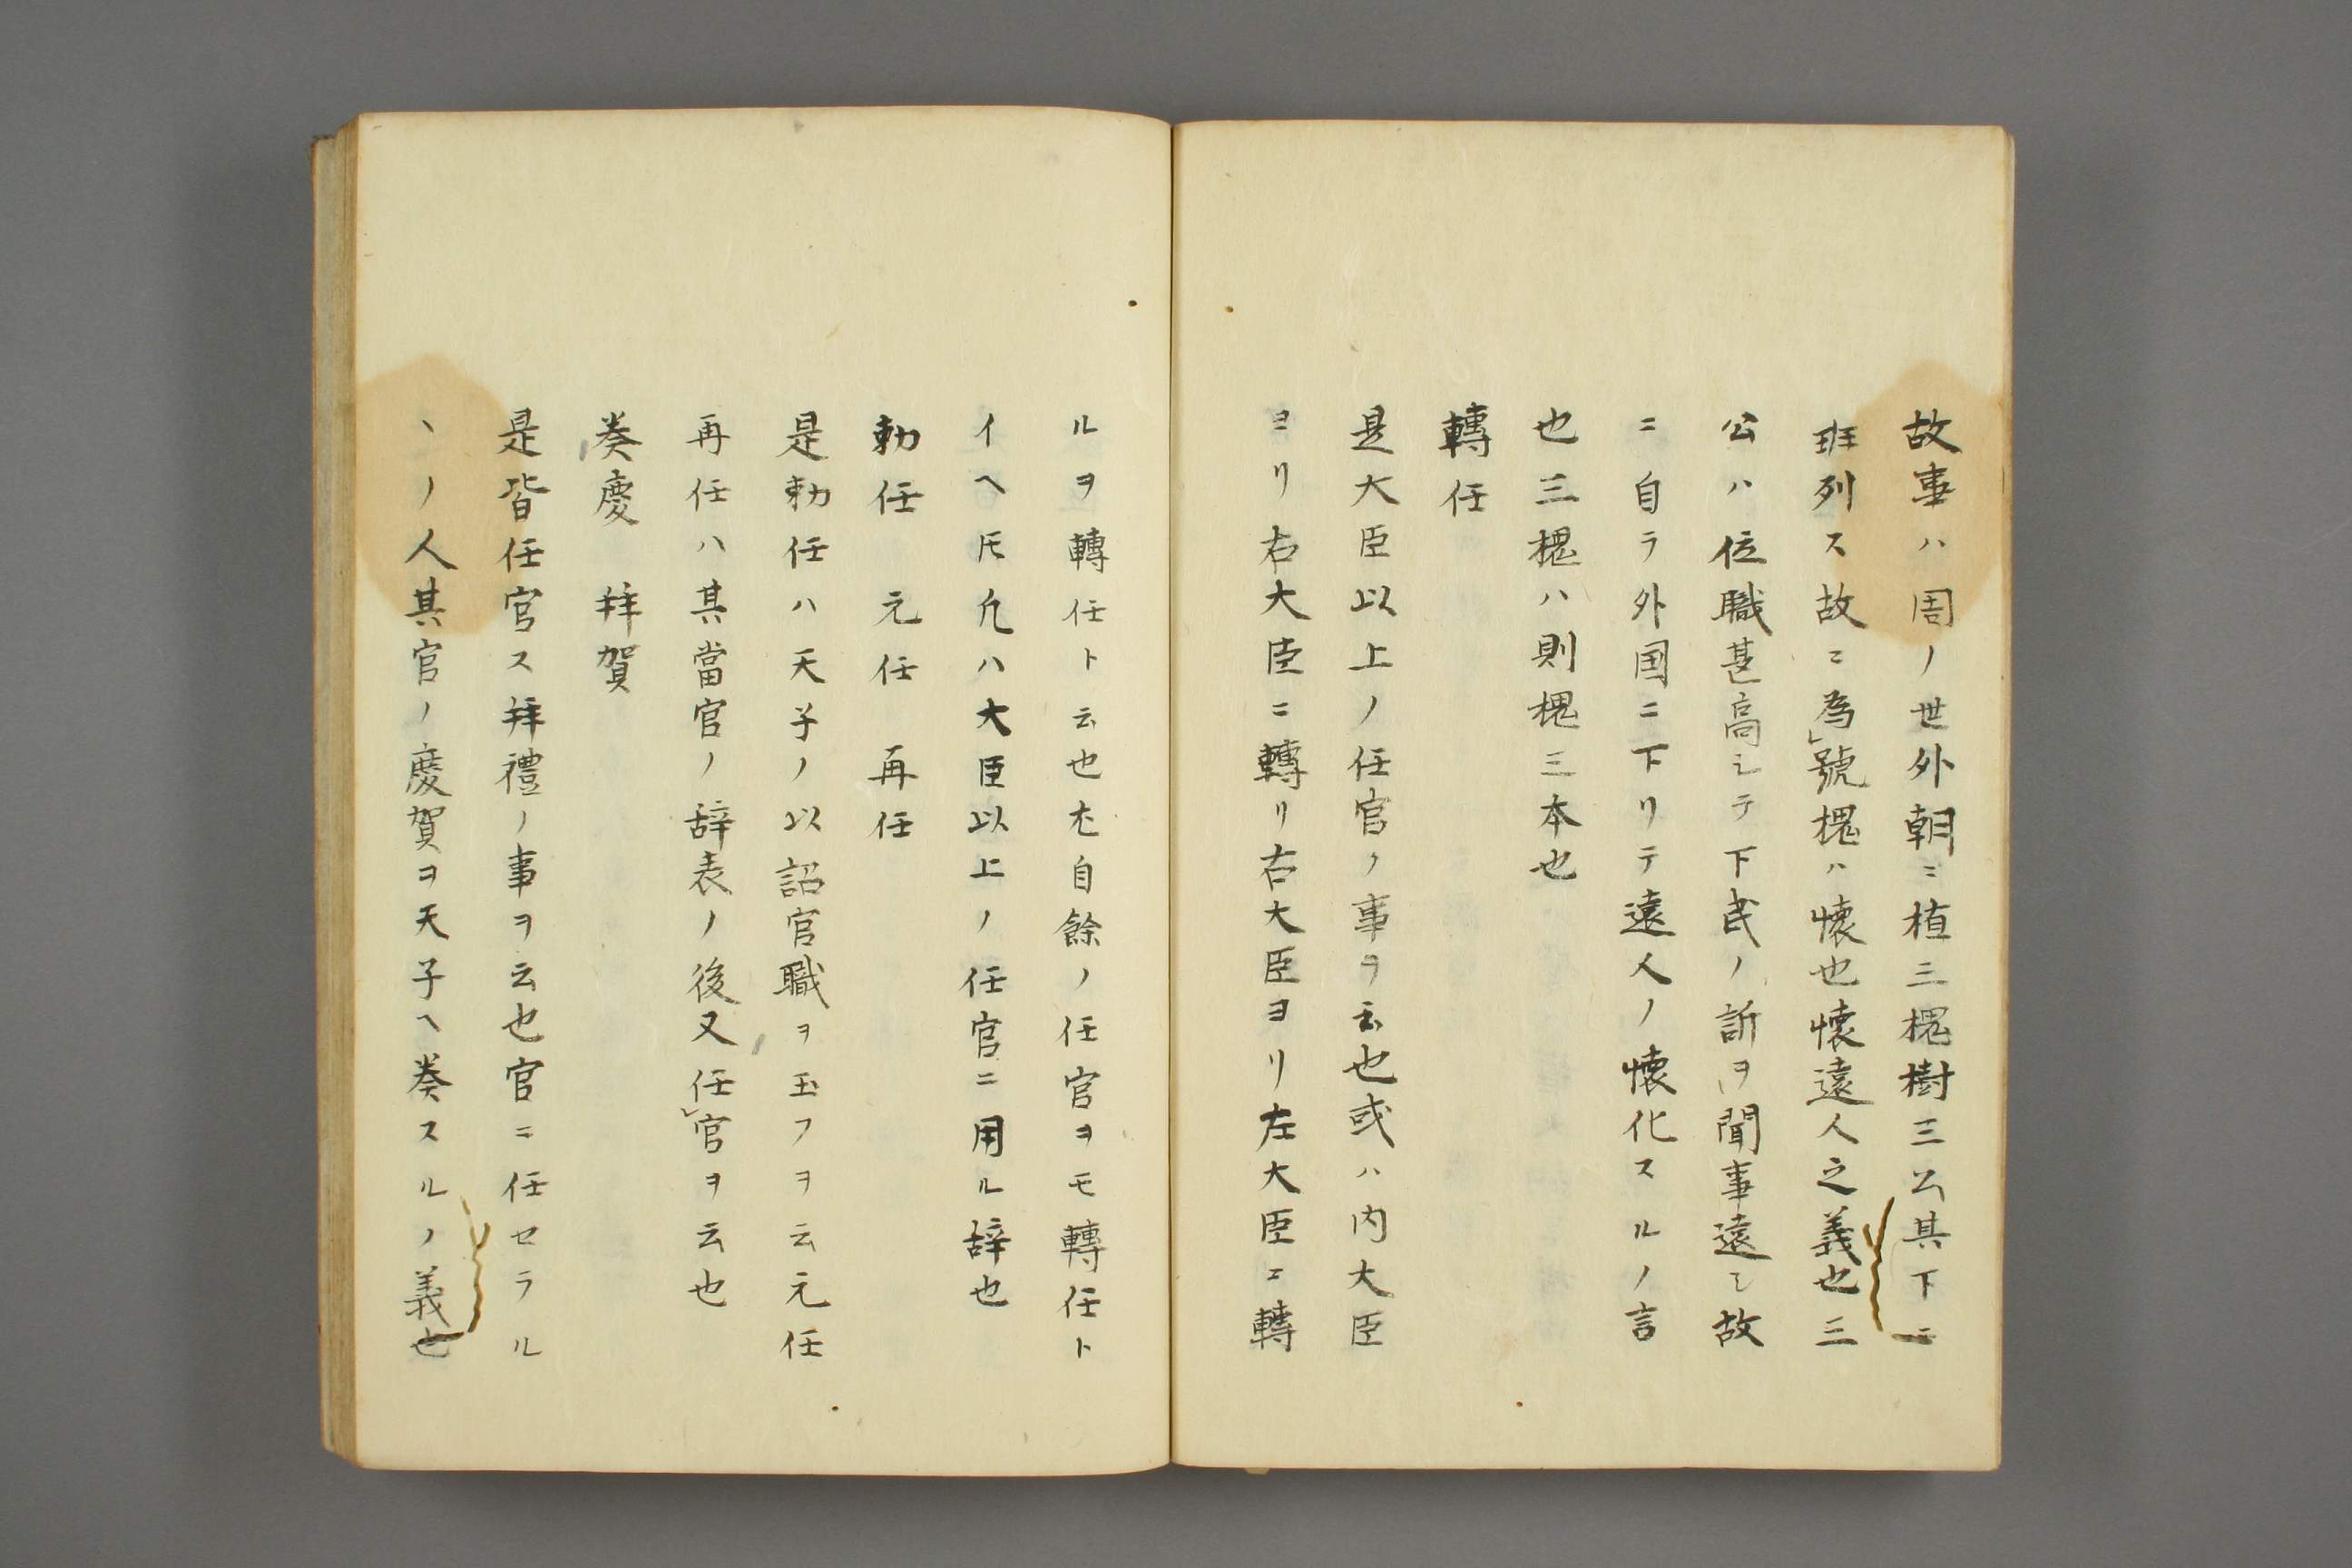 故事ハ周ノ世外朝ニ植三槐樹三公其下ニ
班列ス故ニ為號槐ハ懷也懷遠人之義也三
公ハ位職甚高シテ下民ノ訴ヲ聞事遠シ故
ニ自ラ外国ニ下リテ遠人ノ懷化スルノ言
也三槐ハ則槐三本也
轉任
是大臣以上ノ任官ノ事ヲ云也或ハ内大臣
ヨリ右大臣ニ轉リ右大臣ヨリ左大臣ニ轉
ルヲ轉任ト云也尤自餘ノ任官ヲモ轉任ト
イヘ𪜈凡ハ大臣以上ノ任官ニ用ル辞也
勅任　元任　再任
是勅任ハ天子ノ以詔官職ヲ玉フヲ云元任
再任ハ其當官ノ辞表ノ後又任官ヲ云也
奏慶　拜賀
是皆任官ス拜禮ノ事ヲ云也官ニ任セラル
ヽノ人其官ノ慶賀ヲ天子ヘ奏スルノ義也